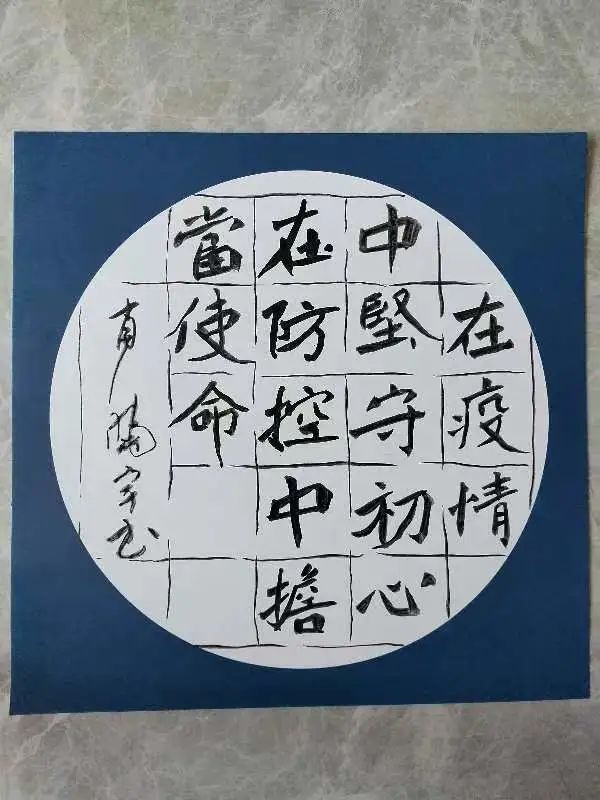 在疫情
中堅守初心
在防控中擔
當使命
宇书